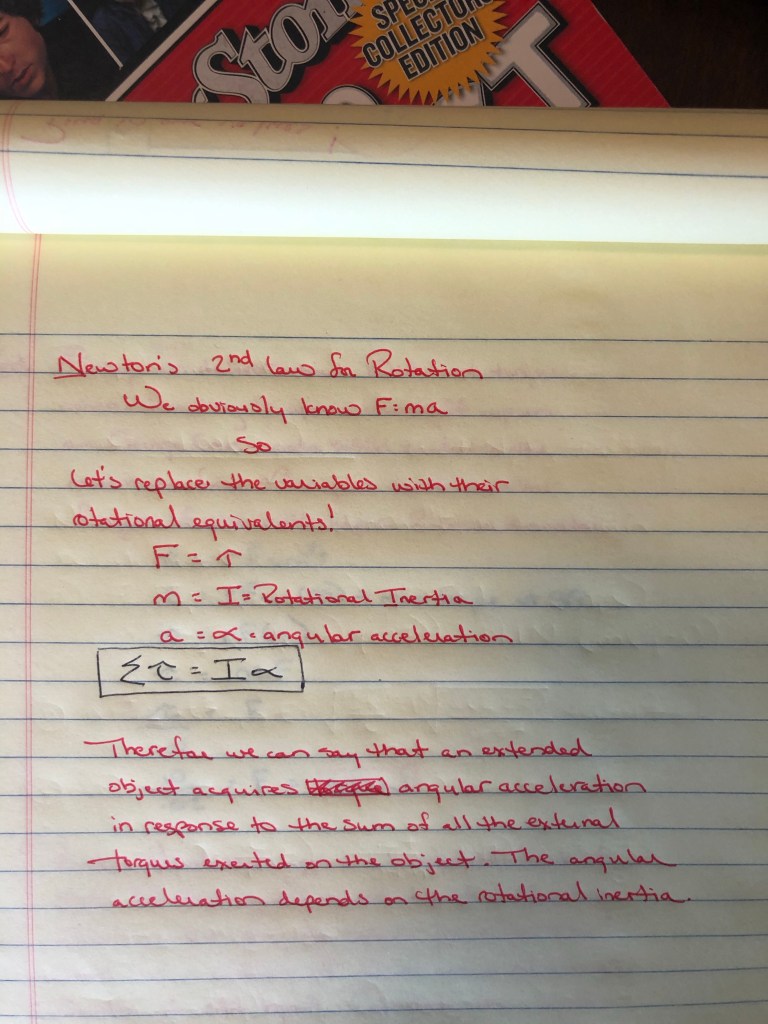 Ston
SPEC
COLLECTOR
EDITION
Newton's 2nd law for Rotation
We obviously know F=ma
So
Let's replace the variables with their
rotational equivalents!
F = τ
m = I = Rotational Inertia
a = α = angular acceleration
Στ = Iα
Therefore we can say that an extended
object acquires angular acceleration
in response to the sum of all the external
torques exerted on the object. The angular
acceleration depends on the rotational inertia.